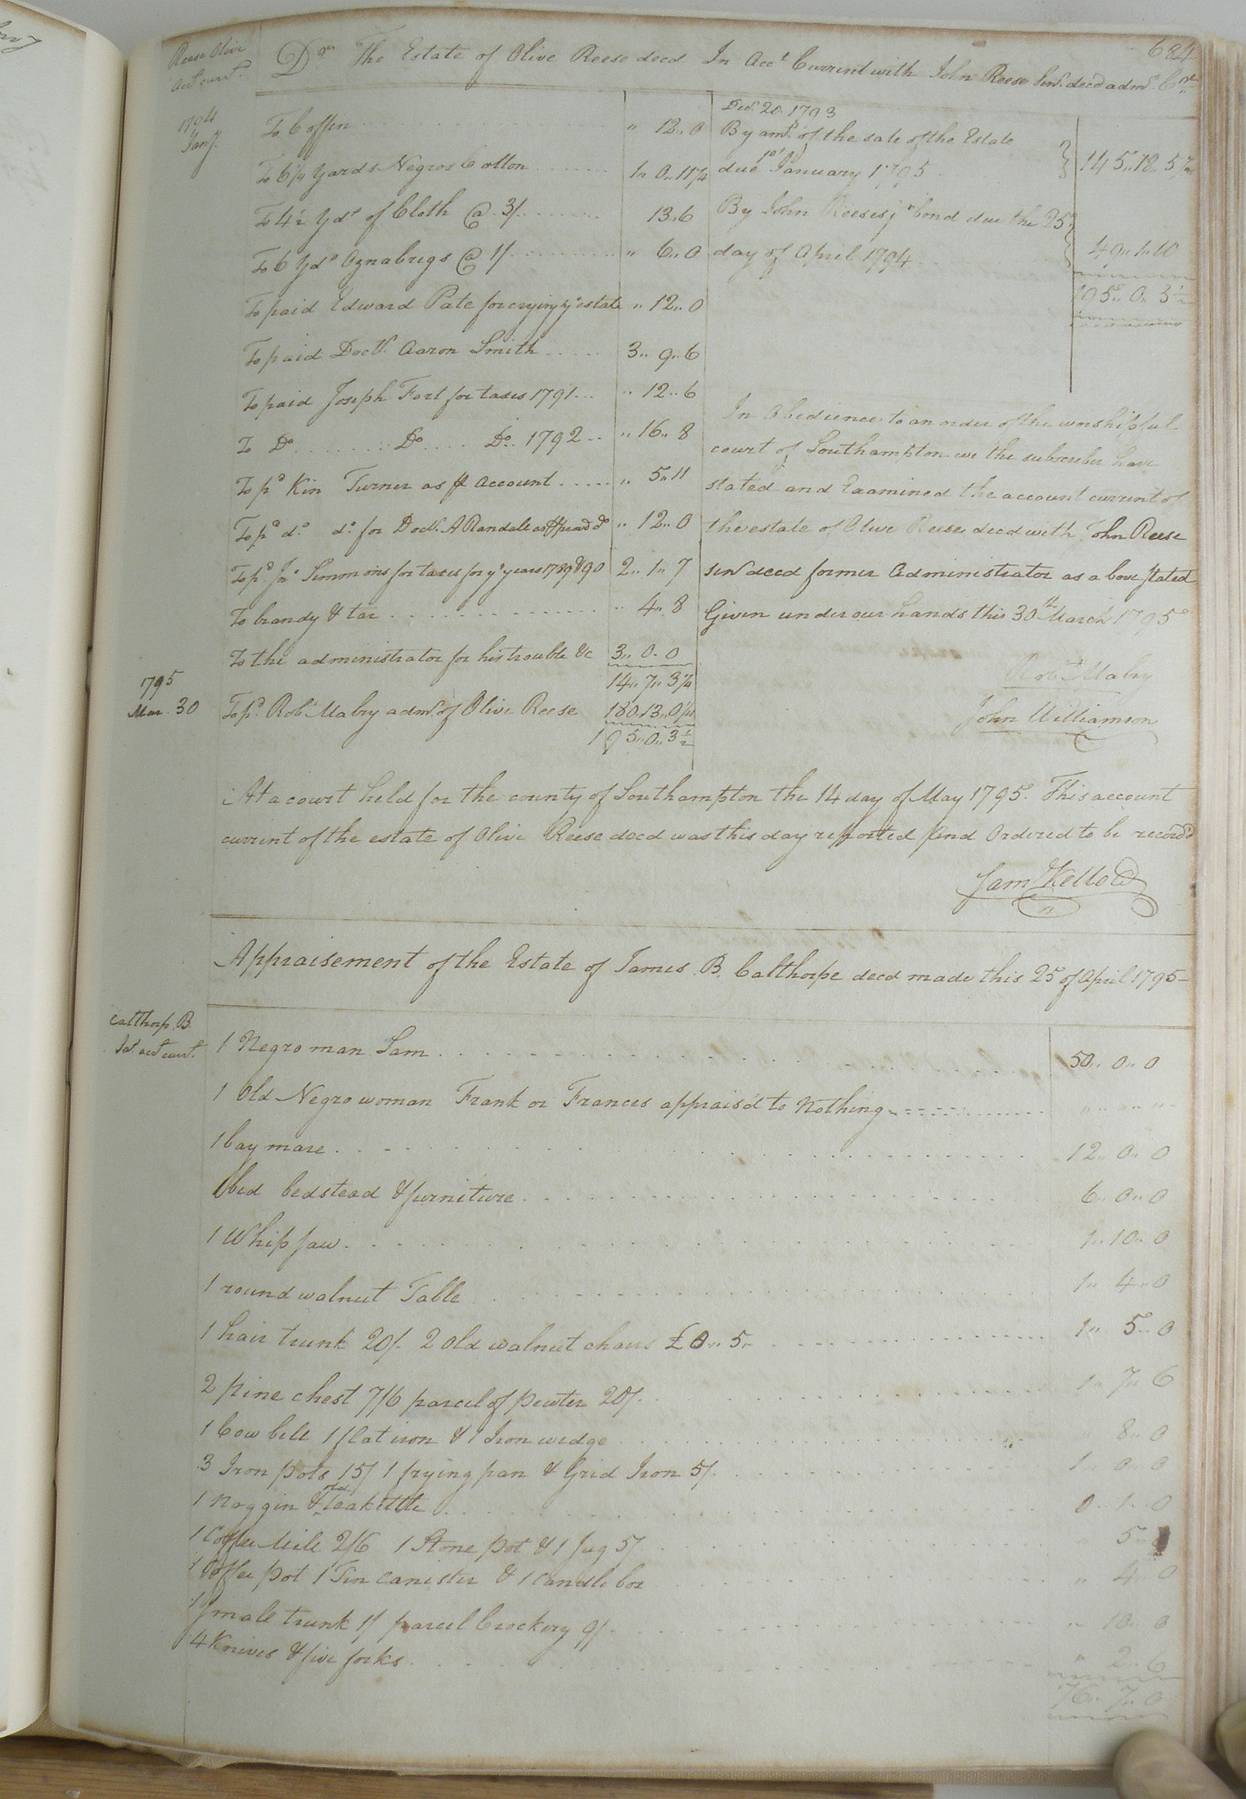 684
Reese Olive
Acct currt.
Dr. The Estate of Olive Reese decd In Acct Current with John Reese Senr. decd admr. Cr.
1794
Jany.
To Coffin " 12.. 0
To 6¼ Yards Negroe Cotton 1.. 0.. 11¾
To 4½ Yds of Cloth @ 3/ 13.. 6
To 6 Yds Oznabrigs @ 1/ " 6.. 0
To paid Edward Pate for crying ye estate " 12.. 0
To paid Doctr. Aaron Smith 3.. 9.. 6
To paid Joseph Fort for taxes 1791 " 12.. 6
To Do Do Do 1792 " 16.. 8
To pd Kin Turner as pr Account " 5.. 11
To pd do do for Doctr. A Randale as pr do " 12.. 0
To pd Jno Simmons for taxes for ye years 1789 & 90 2.. 1.. 7
To brandy & tar " 4.. 8
To the administrator for his trouble &c 3.. 0.. 0
14.. 7.. 3¾
1795
Mar. 30
To pd. Robt Mabry admr. of Olive Reese 180.. 13.. 0
195.. 0.. 3½
Decr 20 1793
By amt. of the sale of the Estate
due 1st January 1795 145.. 18.. 5
By John Reeses jr bond due the 25
day of April 1794 49.. 1.. 10
195.. 0.. 3½
In Obedience to an order of the worshipful
court of Southampton we the subscriber have
stated and Examined the account current of
the estate of Olive Reese decd with John Reese
senr decd former Administrator as above stated
Given under our hands this 30th March 1795
Robt Mabry
John Williamson
At a court held for the county of Southampton the 14 day of May 1795. This account
current of the estate of Olive Reese decd was this day reported and Ordered to be recordd
Saml Kello CC
Appraisement of the Estate of James B. Calthorpe decd made this 25 of April 1795
Calthorp. B.
Jas acct currt.
1 Negro man Sam 50.. 0.. 0
1 Old Negro woman Frank or Frances apprais'd to Nothing " " "
1 bay mare 12.. 0.. 0
1 bed bedstead & furniture 6.. 0.. 0
1 Whip saw 1.. 10.. 0
1 round walnut Table 1.. 4.. 0
1 hair trunk 20/. 2 Old walnut chairs £0.. 5.. 1.. 5.. 0
2 pine chest 7/6 parcel of pewter 20/. 1.. 7.. 6
1 Cow bell 1 flat iron & 1 Iron wedge 8.. 0
3 Iron pots 15/ 1 frying pan & Grid Iron 5/. 1.. 0.. 0
1 Noggin & old teakettle 0.. 1.. 0
1 Coffee Mill 2/6 1 Stone pot & 1 Jug 5/ 5..
1 Coffee pot 1 Tin canester & 1 candle box " 4.. 0
1 smale trunk 1/ parcel Crockery 9/. " 10.. 0
4 Knives & five forks " 2.. 6
76.. 7.. 0